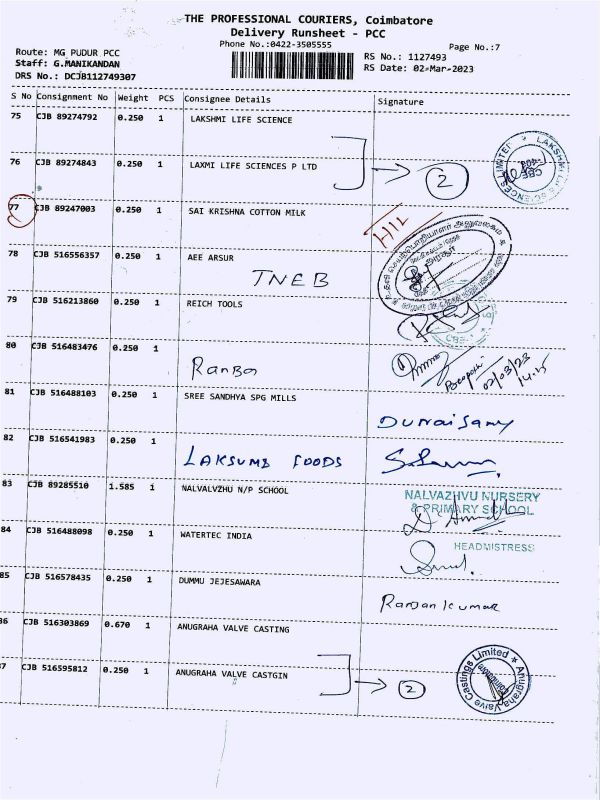 THE PROFESSIONAL COURIERS, Coimbatore
Delivery Runsheet - PCC
Phone No.:0422-3505555
Page No.:7
Route: MG PUDUR PCC
Staff: G.MANIKANDAN
DRS No.: DCJB112749307
RS No.: 1127493
RS Date: 02-Mar-2023
S No Consignment No Weight PCS Consignee Details Signature
75 CJB 89274792 0.250 1 LAKSHMI LIFE SCIENCE
76 CJB 89274843 0.250 1 LAXMI LIFE SCIENCES P LTD 2
77 CJB 89247003 0.250 1 SAI KRISHNA COTTON MILK
78 CJB 516556357 0.250 1 AEE ARSUR
TNEB
79 CJB 516213860 0.250 1 REICH TOOLS
80 CJB 516483476 0.250 1
02/03/23
14.15
81 CJB 516488103 0.250 1 SREE SANDHYA SPG MILLS
DURAISAMY
82 CJB 516541983 0.250 1
LAKSUMI FOODS
83 CJB 89285510 1.585 1 NALVALVZHU N/P SCHOOL
NALVAZHVU NURSERY
& PRIMARY SCHOOL
84 CJB 516488098 0.250 1 WATERTEC INDIA
HEADMISTRESS
85 CJB 516578435 0.250 1 DUMMU JEJESAWARA
Ranjan kumar
86 CJB 516303869 0.670 1 ANUGRAHA VALVE CASTING
87 CJB 516595812 0.250 1 ANUGRAHA VALVE CASTGIN 2
Anugraha Valve Castings Limited